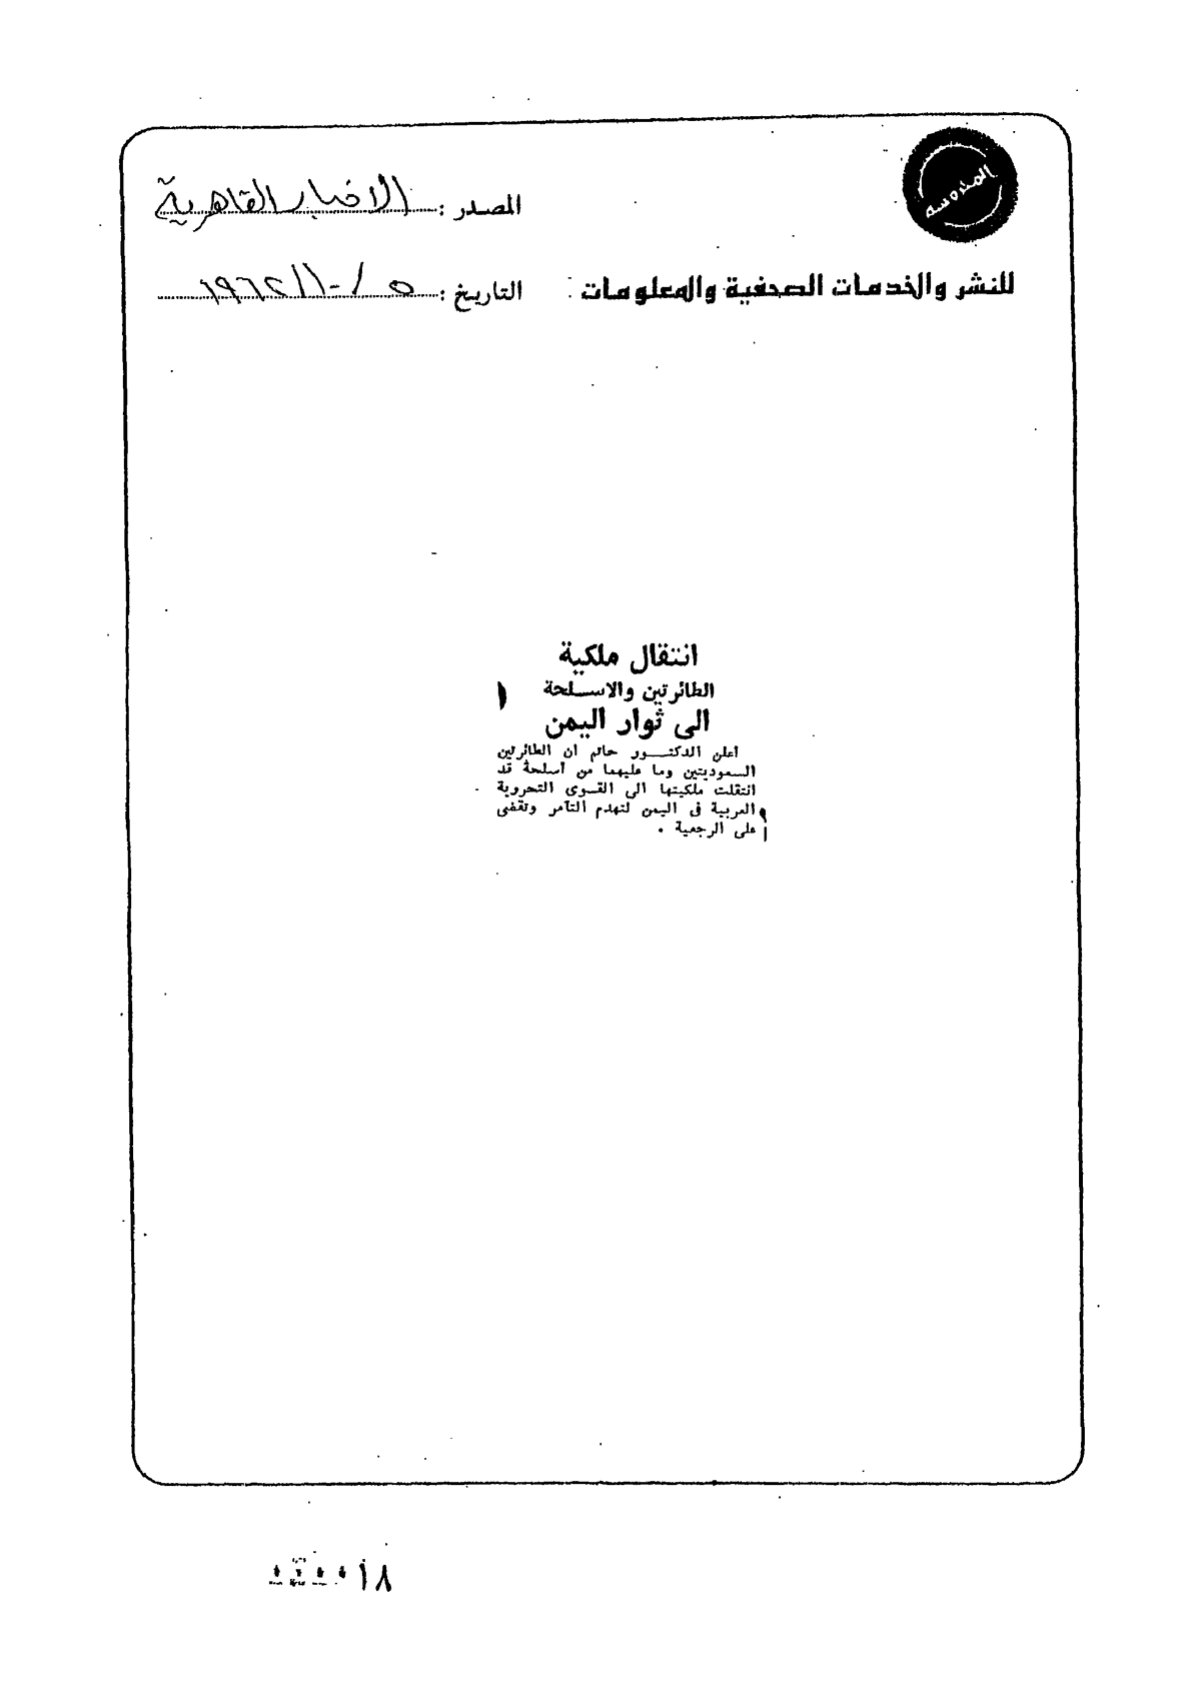 المحروسة
المصدر : الاخبار القاهرية
للنشر والخدمات الصحفية والمعلومات : التاريخ : ٥ / ١٠ / ١٩٦٢
انتقال ملكية
الطائرتين والاسلحة
الى ثوار اليمن
أعلن الدكتور حاتم ان الطائرتين
السعوديتين وما عليهما من أسلحة قد
انتقلت ملكيتها الى القوى التحررية
العربية فى اليمن لتهدم التآمر وتقضى
على الرجعية .